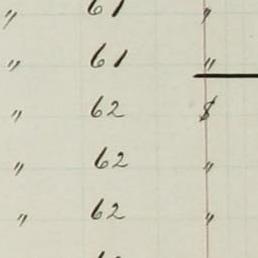 " 61 "
" 61 "
" 62 $
" 62 "
" 62 "